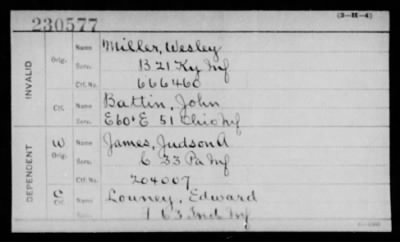 230577
(3-H-4)
INVALID
Orig.
Name Miller, Wesley
Serv. B 21 Ky Inf
Ctf. No. 666460
Ctf.
Name Battin, John
Serv. E 60 + E 51 Ohio Inf
DEPENDENT
W
Orig.
Name James, Judson A
Serv. C 33 Pa Inf
Ctf. No. 204007
C
Ctf.
Name Louney, Edward
Serv. I 63 Ind Inf